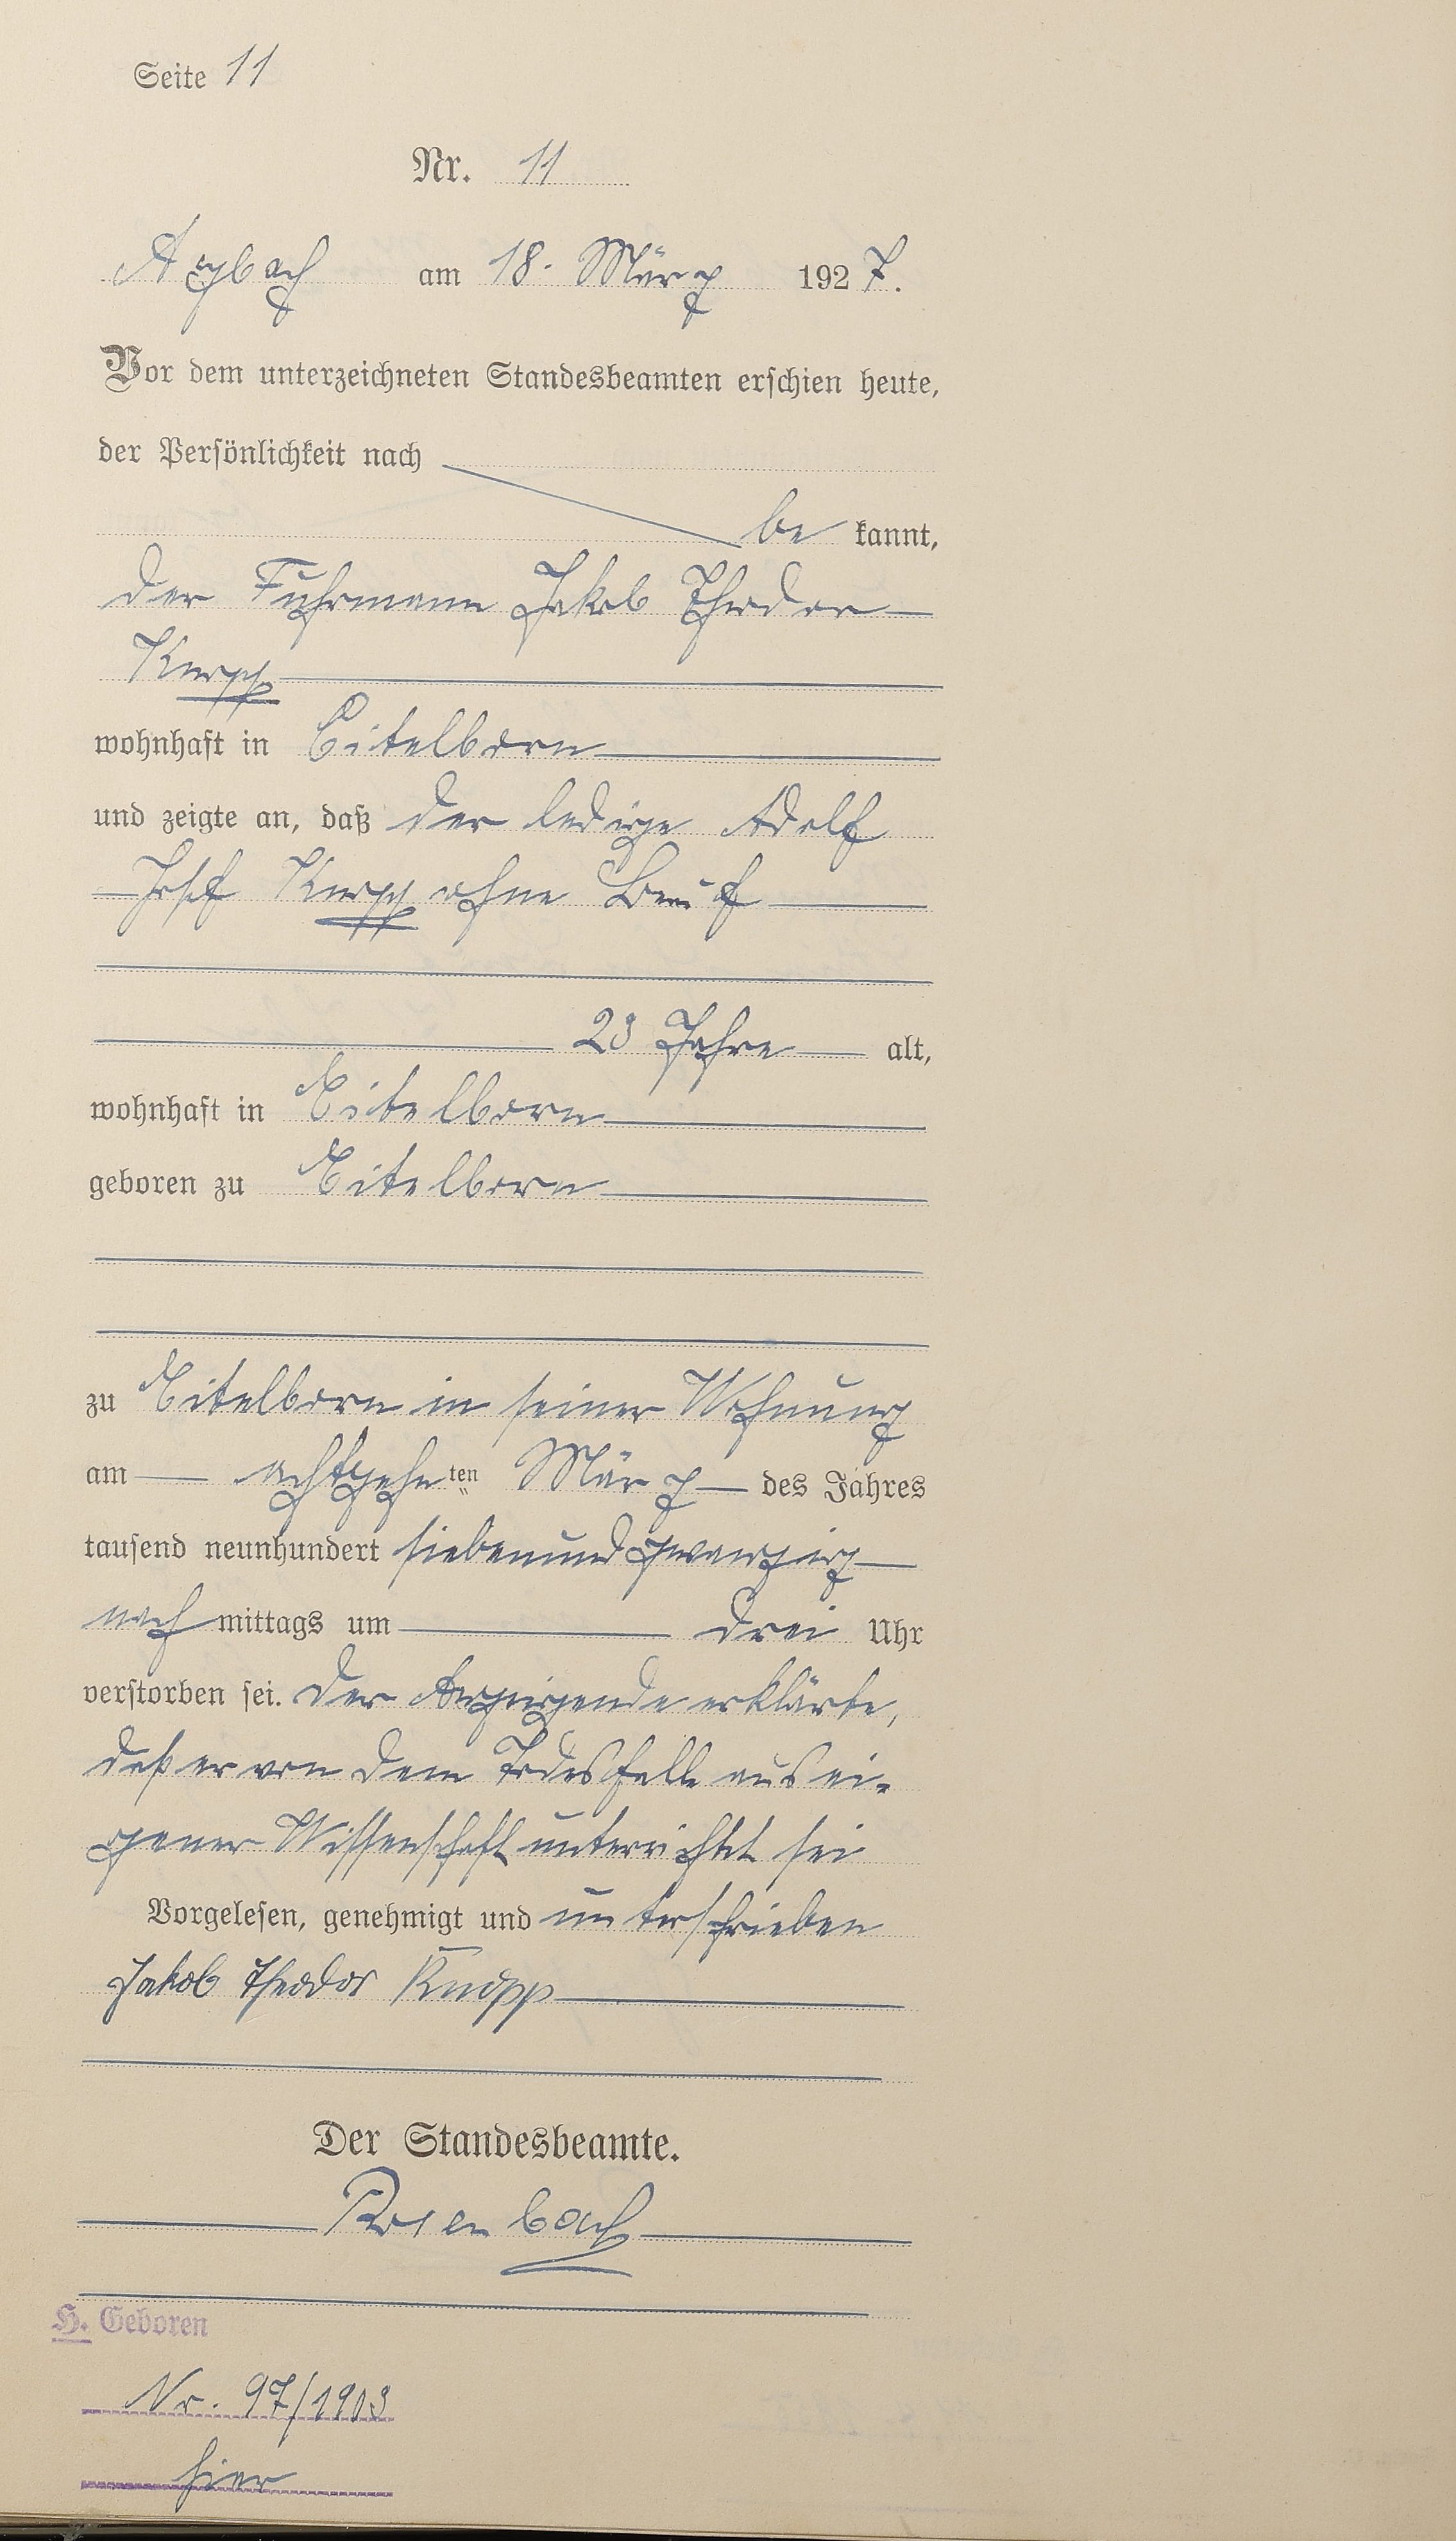 Seite 11
Nr. 11
Arzbach am 18. März 1927.
Vor dem unterzeichneten Standesbeamten erschien heute,
der Persönlichkeit nach
be kannt,
der Fuhrmann Jakob Theodor
Knopp
wohnhaft in Eitelborn
und zeigte an, daß der ledige Adolf
Josef Knopp ohne Beruf
23 Jahre alt,
wohnhaft in Eitelborn
geboren zu Eitelborn
zu Eitelborn in seiner Wohnung
am achtzehnten März des Jahres
tausend neunhundert siebenundzwanzig
nach mittags um drei Uhr
verstorben sei. Der Anzeigende erklärte,
daß er von dem Todesfalle aus ei-
gener Wissenschaft unterrichtet sei
Vorgelesen, genehmigt und unterschrieben
Jakob Theodor Knopp
Der Standesbeamte.
Rosenbach
H. Geboren
Nr. 97/1903
hier